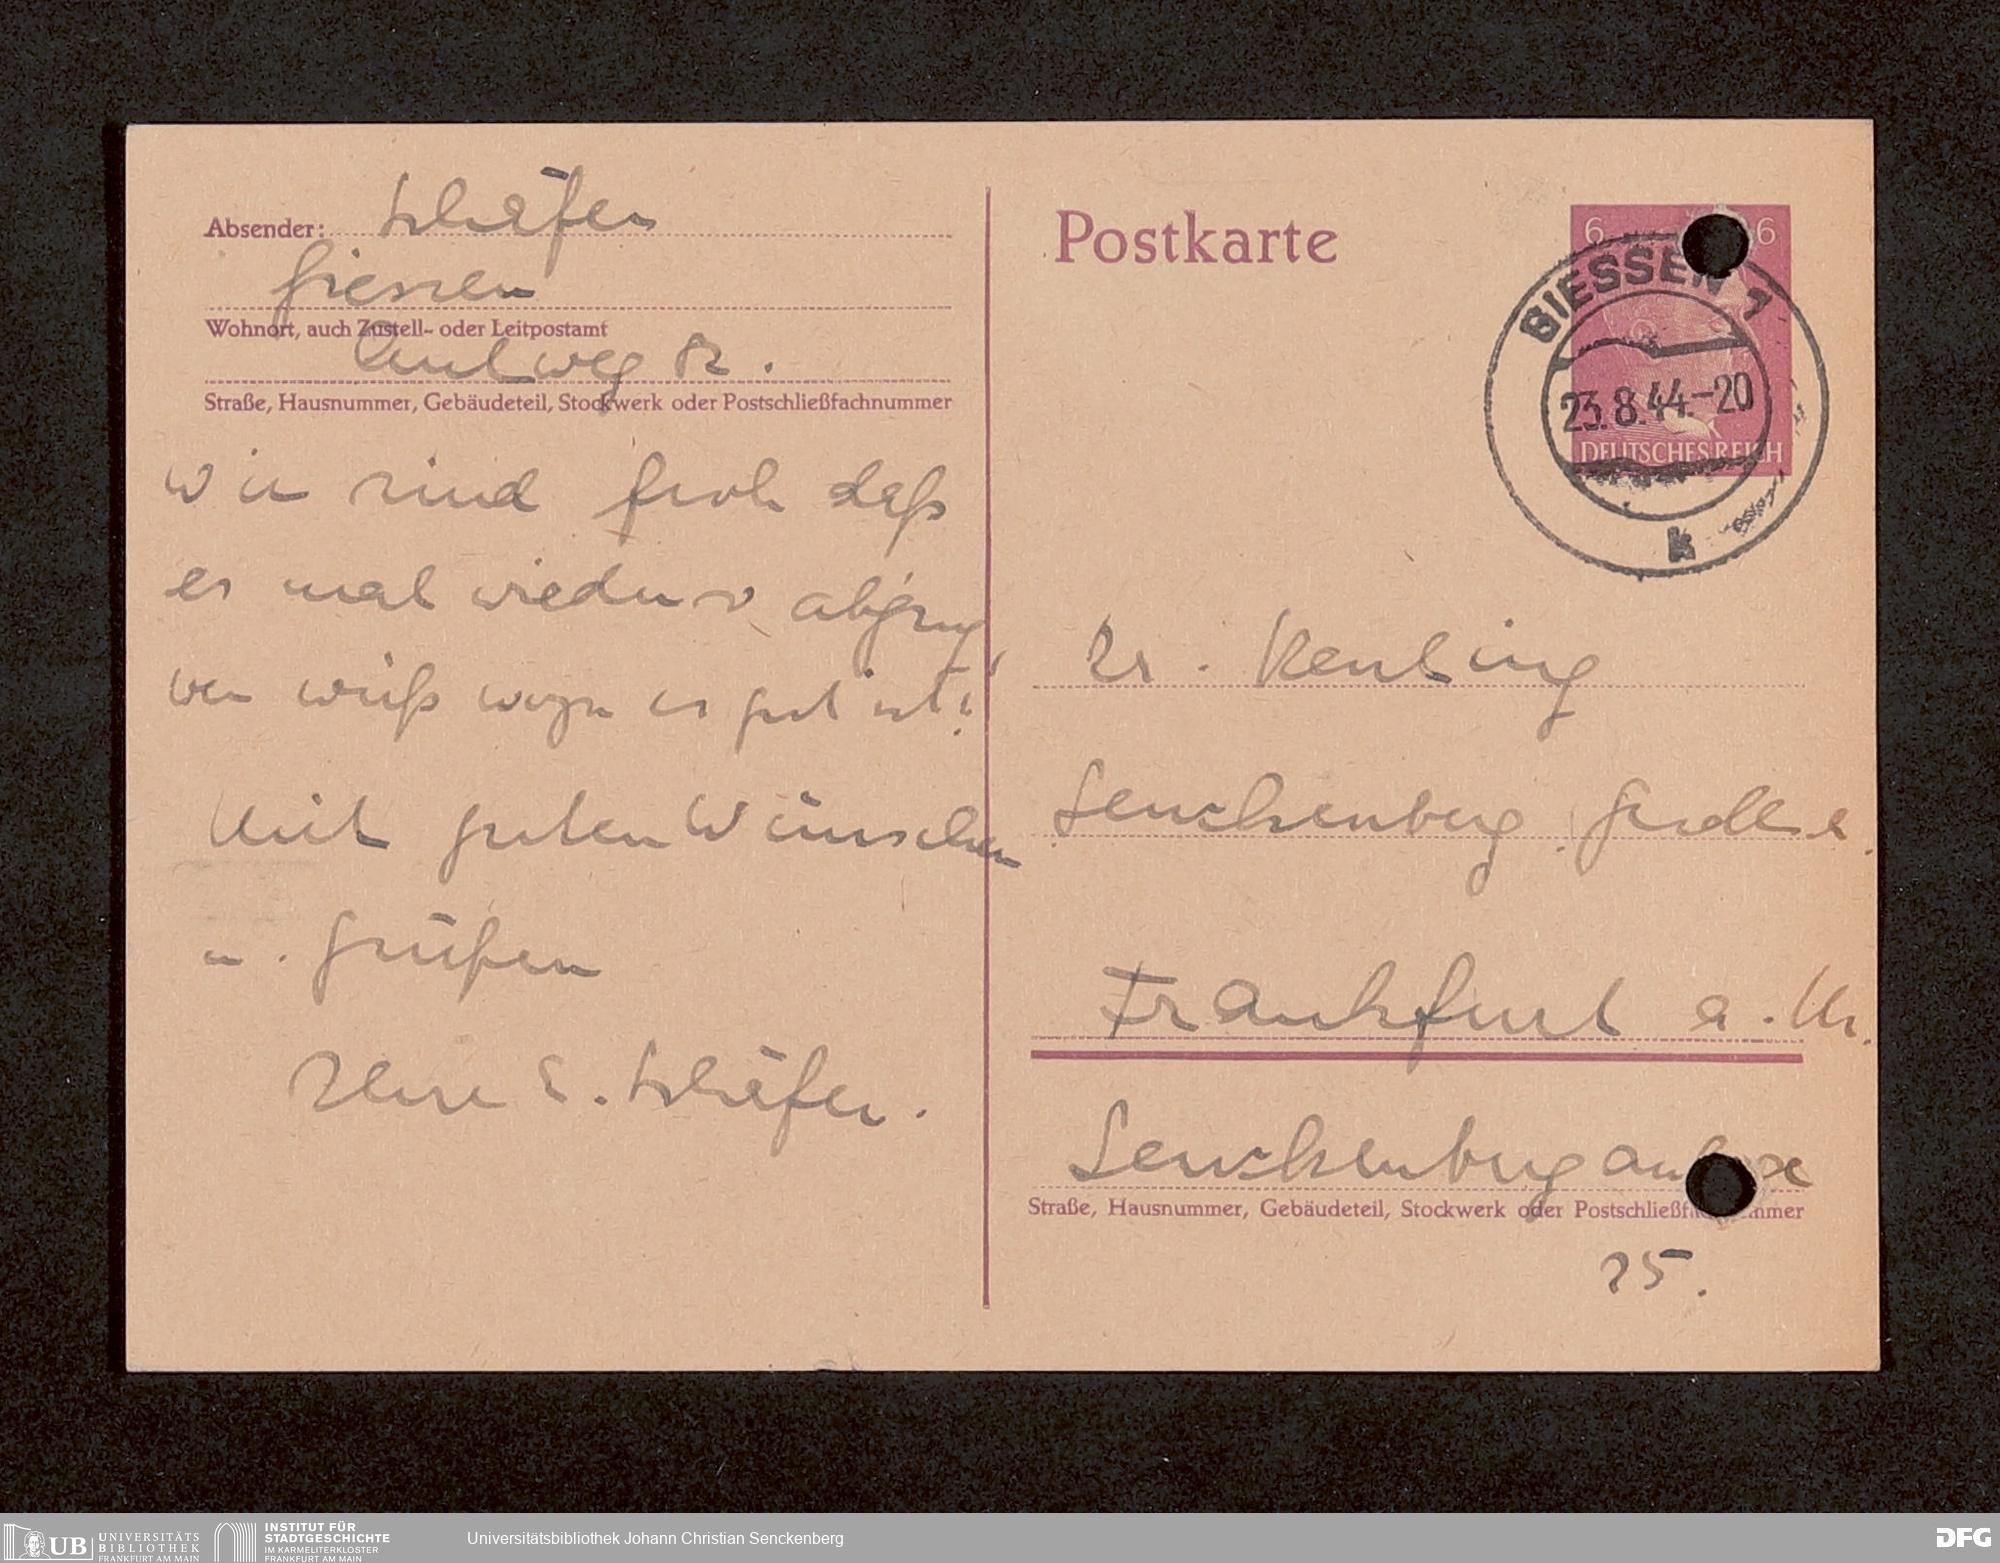 Absender: Schäfer
Giessen
Wohnort, auch Zustell- oder Leitpostamt
Aulweg 82.
Straße, Hausnummer, Gebäudeteil, Stockwerk oder Postschließfachnummer
Wir sind froh daß
es mal wieder so abging,
wer weiß wozu es gut ist!
Mit guten Wünschen
u. Grüßen
Ihre E. Schäfer.
Postkarte
6 6
GIESSEN 1
23.8.44.-20
DEUTSCHES REICH
k
Dr.
Senckenberg. Gesells.
Frankfurt a. M.
Senckenberganlage
Straße, Hausnummer, Gebäudeteil, Stockwerk oder Postschließfachnummer
25.
UB UNIVERSITÄTS
BIBLIOTHEK
FRANKFURT AM MAIN
INSTITUT FÜR
STADTGESCHICHTE
IM KARMELITERKLOSTER
FRANKFURT AM MAIN
Universitätsbibliothek Johann Christian Senckenberg
DFG